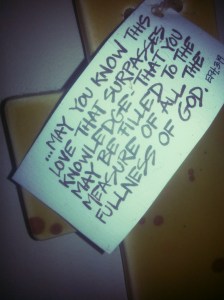 ...MAY YOU KNOW THIS
LOVE THAT SURPASSES
KNOWLEDGE, THAT YOU
MAY BE FILLED TO THE
MEASURE OF ALL THE
FULLNESS OF GOD. EPH 3:19